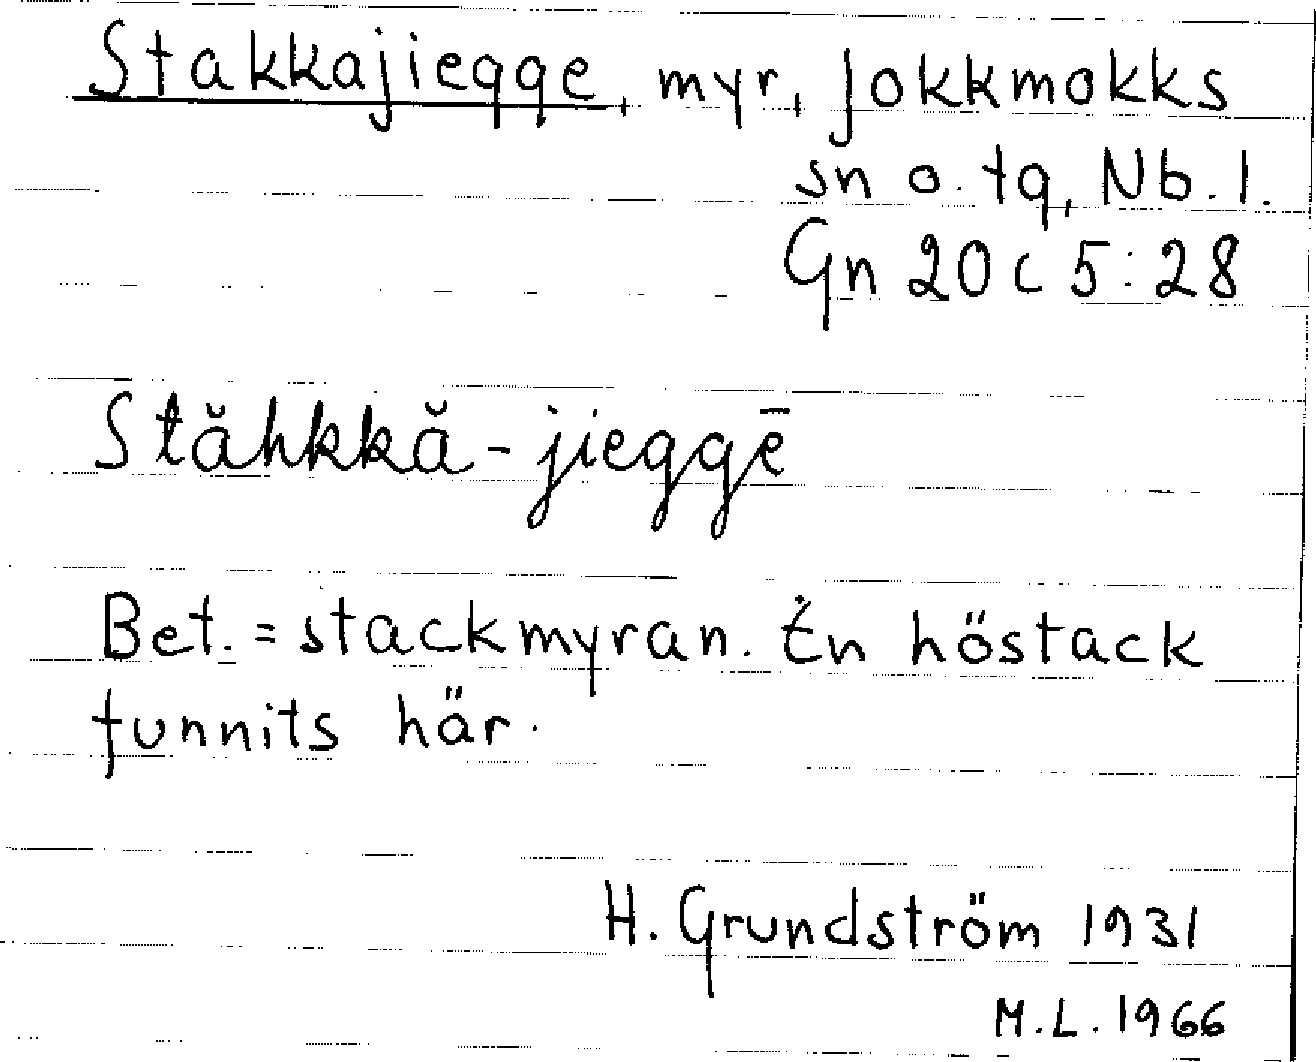 Stakkajiegge, myr, Jokkmokks
sn o. tg, Nb. l.
Gn 20 c 5:28
Stăhkkă-jieggē
Bet. = stackmyran. En höstack
funnits här.
H. Grundström 1931
M.L. 1966